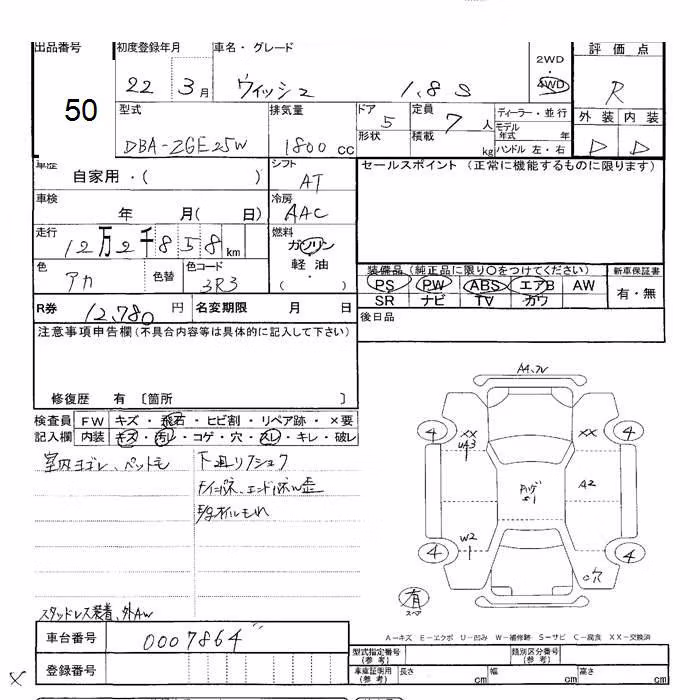 出品番号
50
初度登録年月
22年 3月
車名・グレード
ウィッシュ 1.8S
2WD
4WD
評価点
R
型式
DBA-ZGE25W
排気量
1800 cc
ドア
5
形状
定員
7人
積載
kg
ディーラー・並行
モデル年式 年
ハンドル 左・右
外装 内装
D D
車歴
自家用・( )
シフト
AT
セールスポイント (正常に機能するものに限ります)
車検
年 月( 日)
冷房
AAC
走行
12万2千858km
燃料
ガソリン
軽油・
( )
色
アカ
色替
色コード
3R3
装備品 (純正品に限り〇をつけてください)
PS PW ABS エアB AW
SR ナビ TV カワ
新車保証書
有・無
R券 12,780円
名変期限 月 日
後日品
注意事項申告欄 (不具合内容等は具体的に記入して下さい)
修復歴 有 〔箇所 〕
検査員記入欄
FW キズ・飛石・ヒビ割・リペア跡・×要
内装 キズ・汚レ・コゲ・穴・スレ・キレ・破レ
室内ヨゴレ、ペット毛
下廻りフショク
エンドパネル歪
オイルもれ
スタッドレス装着、外AW
A4
4 XX XX 4
UA3
A2
W2
4 4
穴
有
スペア
A-キズ E-エクボ U-凹み W-補修跡 S-サビ C-腐食 XX-交換済
車台番号 0007864
登録番号
型式指定番号 (参考)
類別区分番号 (参考)
車庫証明用 (参考)
長さ cm
幅 cm
高さ cm